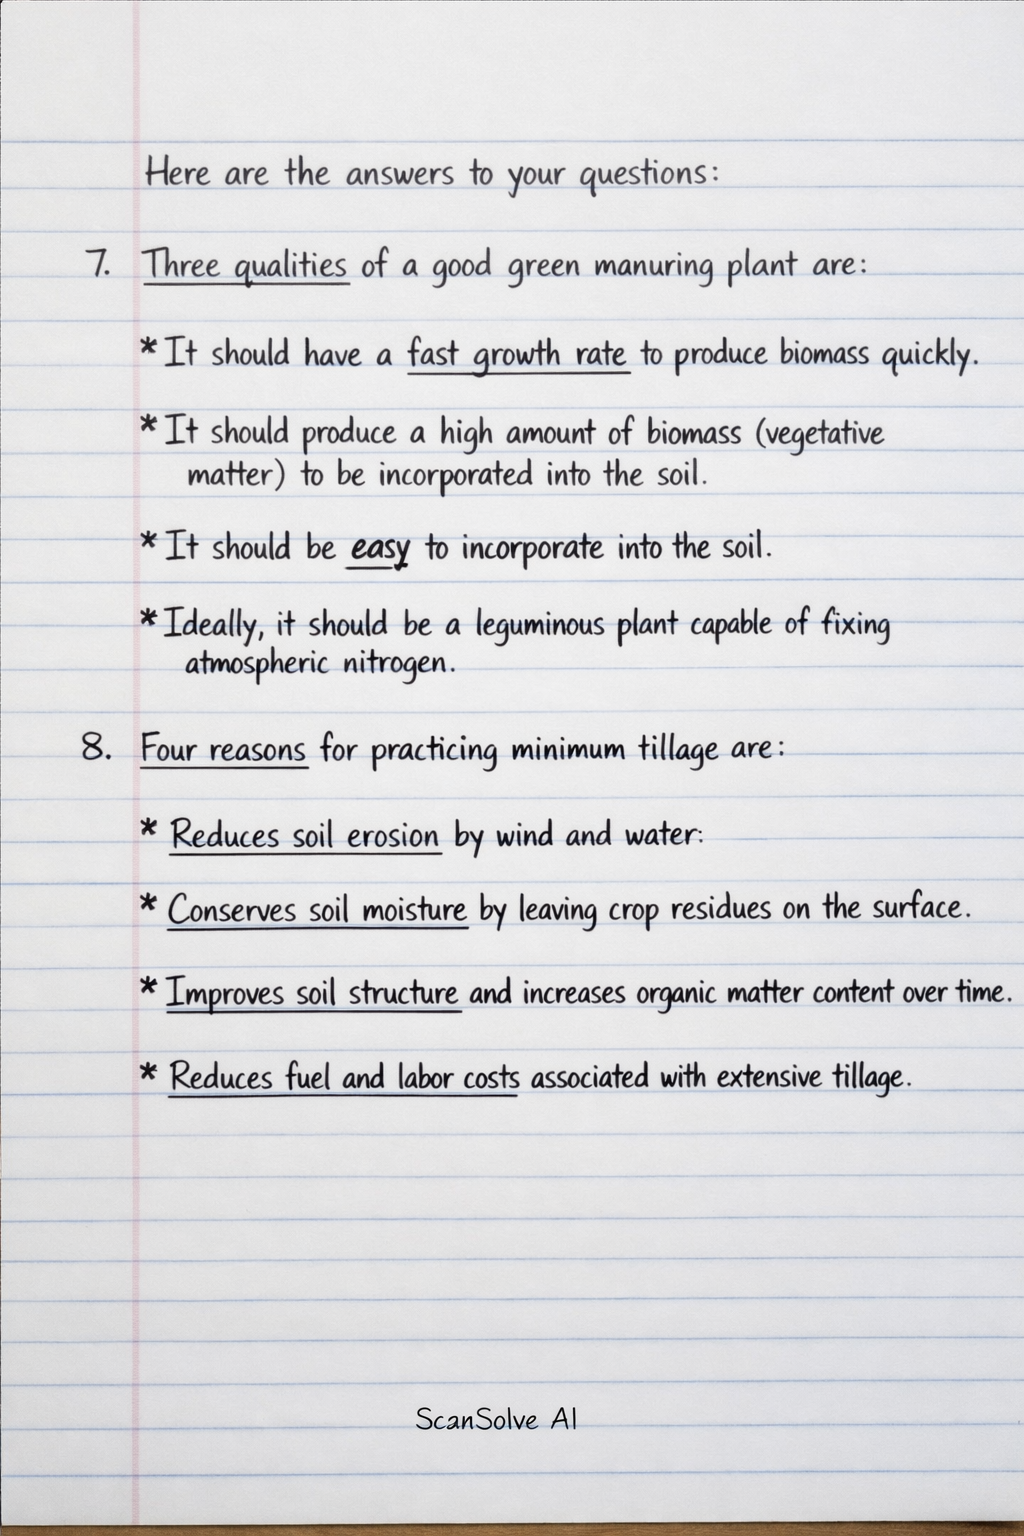 Here are the answers to your questions:
7. Three qualities of a good green manuring plant are:
* It should have a fast growth rate to produce biomass quickly.
* It should produce a high amount of biomass (vegetative
matter) to be incorporated into the soil.
* It should be easy to incorporate into the soil.
* Ideally, it should be a leguminous plant capable of fixing
atmospheric nitrogen.
8. Four reasons for practicing minimum tillage are:
* Reduces soil erosion by wind and water:
* Conserves soil moisture by leaving crop residues on the surface.
* Improves soil structure and increases organic matter content over time.
* Reduces fuel and labor costs associated with extensive tillage.
ScanSolve AI